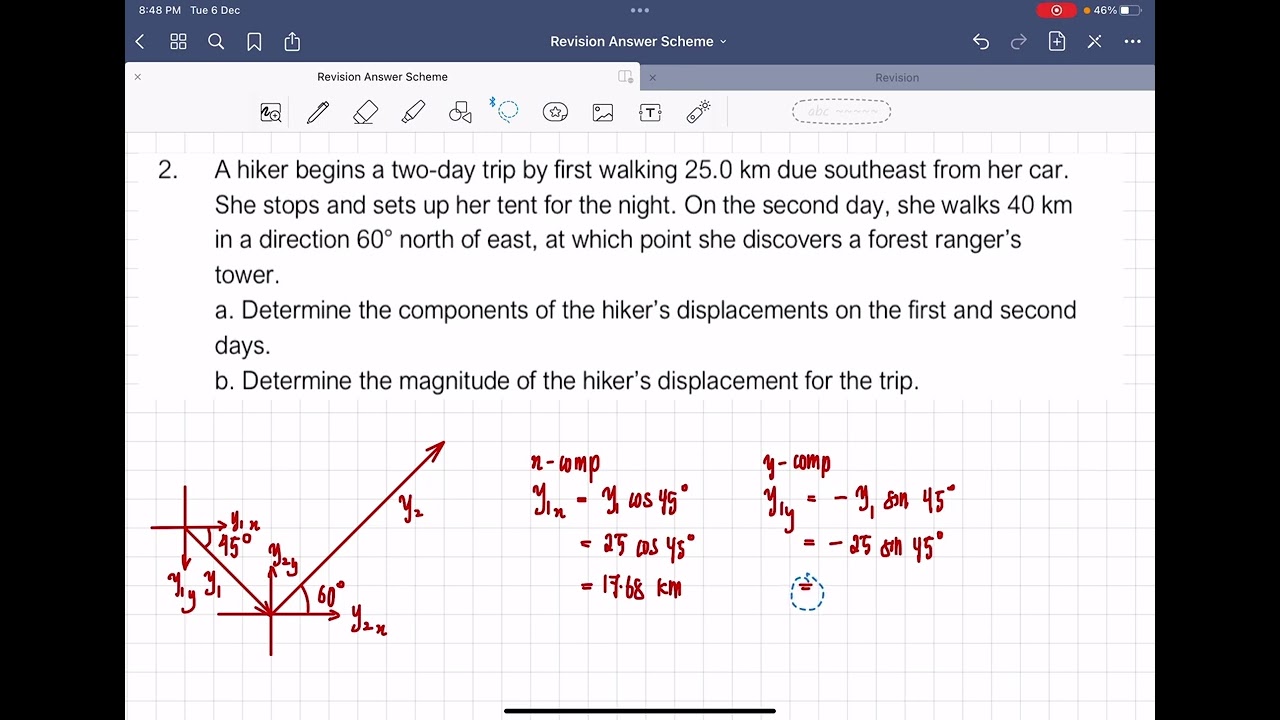 8:48 PM Tue 6 Dec
46%
Revision Answer Scheme
Revision Answer Scheme
Revision
abc
2. A hiker begins a two-day trip by first walking 25.0 km due southeast from her car.
She stops and sets up her tent for the night. On the second day, she walks 40 km
in a direction 60° north of east, at which point she discovers a forest ranger's
tower.
a. Determine the components of the hiker's displacements on the first and second
days.
b. Determine the magnitude of the hiker's displacement for the trip.
x-comp
y₁ₓ = y₁ cos 45°
= 25 cos 45°
= 17.68 km
y-comp
y₁y = - y₁ sin 45°
= - 25 sin 45°
=
y₁ₓ
45°
y₁y
y₁
y₂y
y₂
60°
y₂ₓ